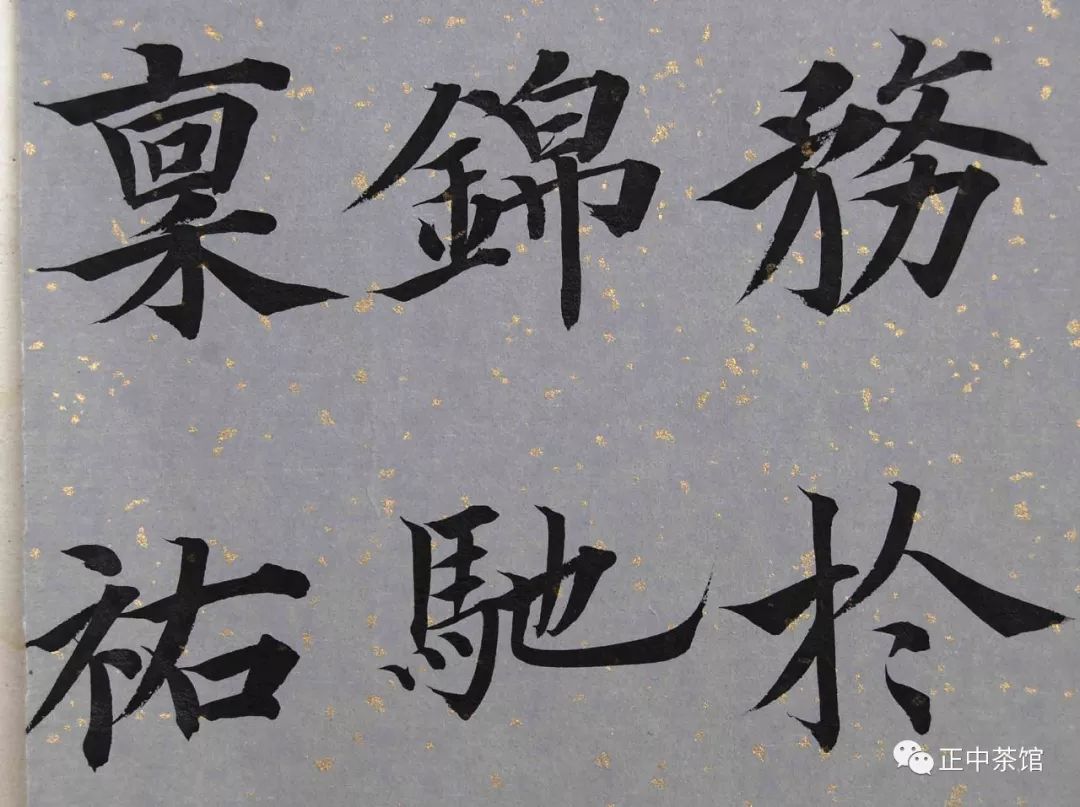 務於
錦馳
稟祐
正中茶馆